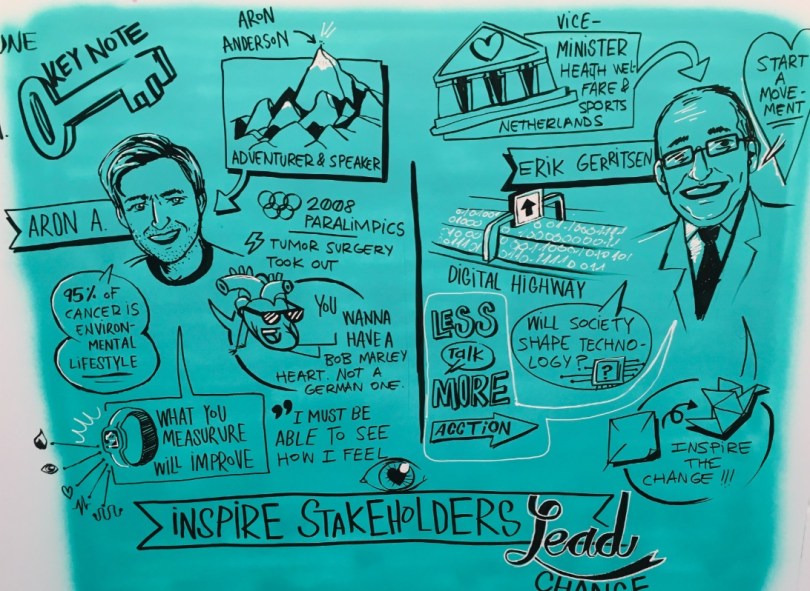 UNE
KEY NOTE
ARON
ANDERSON
ADVENTURER & SPEAKER
ARON A.
2008
PARALIMPICS
TUMOR SURGERY
TOOK OUT
95% OF
CANCER IS
ENVIRON-
MENTAL
LIFESTYLE
YOU
WANNA
HAVE A
BOB MARLEY
HEART. NOT A
GERMAN ONE.
WHAT YOU
MEASURURE
WILL IMPROVE
" I MUST BE
ABLE TO SEE
HOW I FEEL
VICE-
MINISTER
HEATH WEL-
FARE &
SPORTS
NETHERLANDS
START
A
MOVE-
MENT
ERIK GERRITSEN
DIGITAL HIGHWAY
LESS
Talk
MORE
ACCTION
WILL SOCIETY
SHAPE TECHNO-
LOGY?
?
INSPIRE
THE
CHANGE !!!
INSPIRE STAKEHOLDERS
Lead
CHANGE